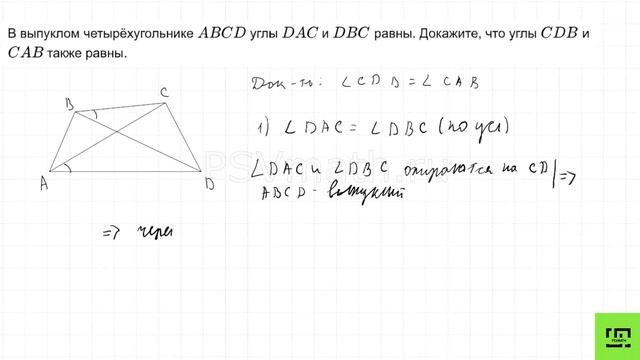 В выпуклом четырёхугольнике ABCD углы DAC и DBC равны. Докажите, что углы CDB и
CAB также равны.
Док-ть: ∠CDB = ∠CAB
1) ∠DAC = ∠DBC (по усл)
∠DAC и ∠DBC опираются на CD | =>
ABCD - выпуклый
=> через
B
C
A
D
PSVmath.ru
PSVMATH